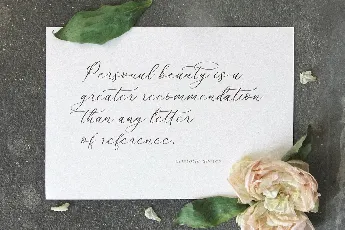 Personal beauty is a
greater recommendation
than any letter
of reference.